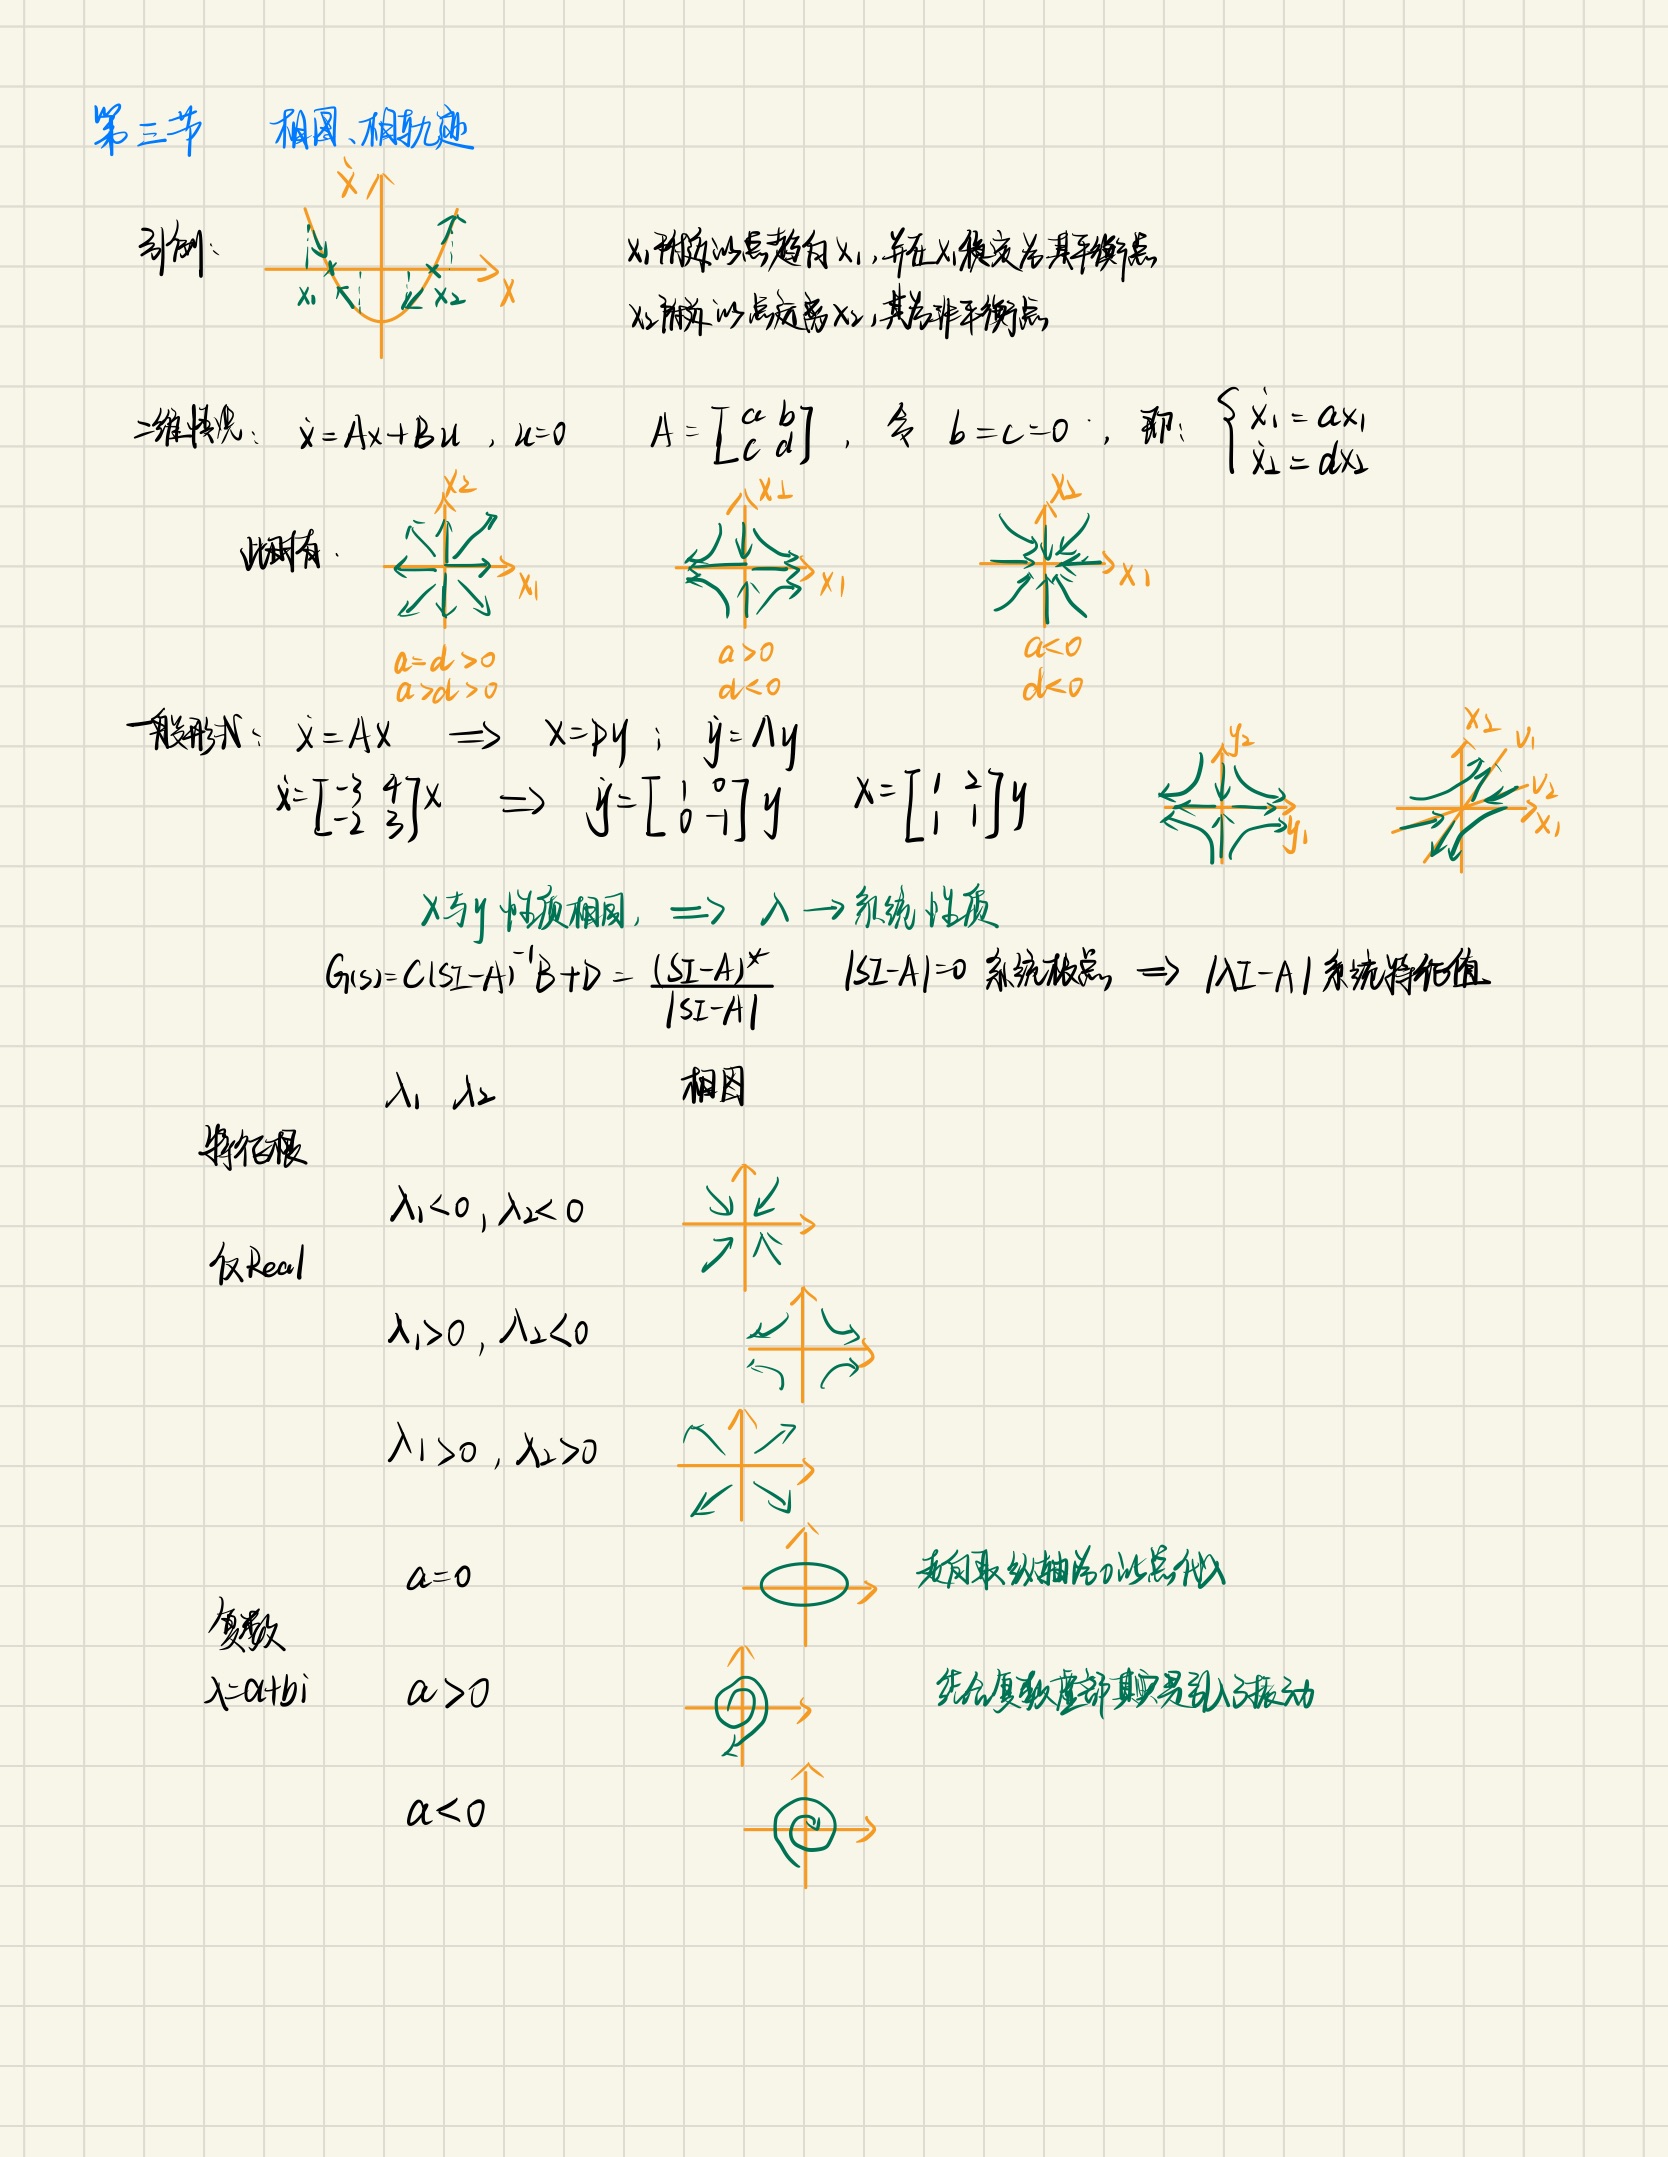 第三节 相图、相轨迹
ẋ
引例:
x₁ x₂ x
x₁附近的点趋向x₁,并在x₁稳定为其平衡点
x₂附近的点远离x₂,其为非平衡点
二维情况: ẋ=Ax+Bu , u=0 A=[a b; c d] , 令 b=c=0 , 即: { ẋ₁=ax₁
ẋ₂=dx₂
x₂ x₂ x₂
此时有:
x₁ x₁ x₁
a=d>0 a>0 a<0
a>d>0 d<0 d<0
一般形式: ẋ=Ax ⇒ x=Py ; ẏ=Λy
y₂ x₂ v₁
ẋ=[-3 4; -2 3]x ⇒ ẏ=[1 0; 0 -1]y x=[1 2; 1 1]y
y₁ v₂ x₁
x与y性质相同, ⇒ λ→系统性质
G(s)=C(SI-A)⁻¹B+D=(SI-A)*/|SI-A| |SI-A|=0 系统极点 ⇒ |λI-A| 系统特征值
λ₁ λ₂ 相图
特征根
λ₁<0, λ₂<0
仅Real
λ₁>0, λ₂<0
λ₁>0, λ₂>0
a=0 走向取纵轴为0的点代入
复数
λ=a+bi a>0 结合复数虚部其实是引入了振动
a<0